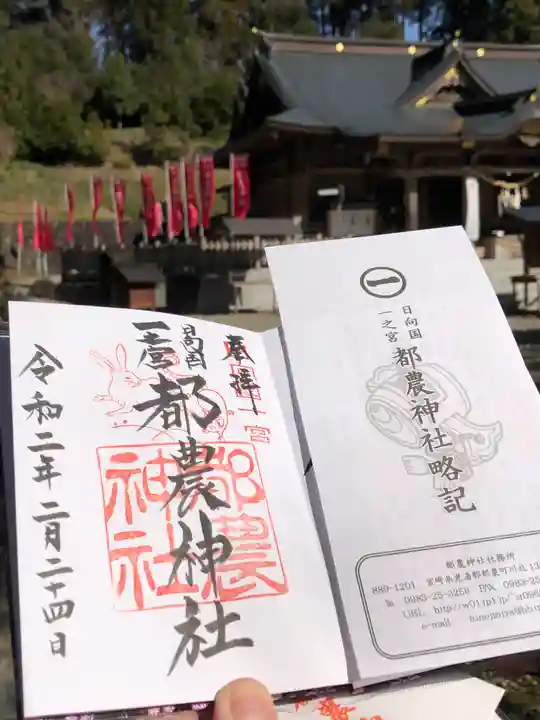 奉拝
日向国
一宮
都農神社
令和二年二月二十四日
都農
神社
一
日向国
一之宮
都農神社略記
都農神社社務所
889-1201 宮崎県児湯郡都農町川北13
℡ 0983-25-3256 FAX 0983-25
URL
e-mail